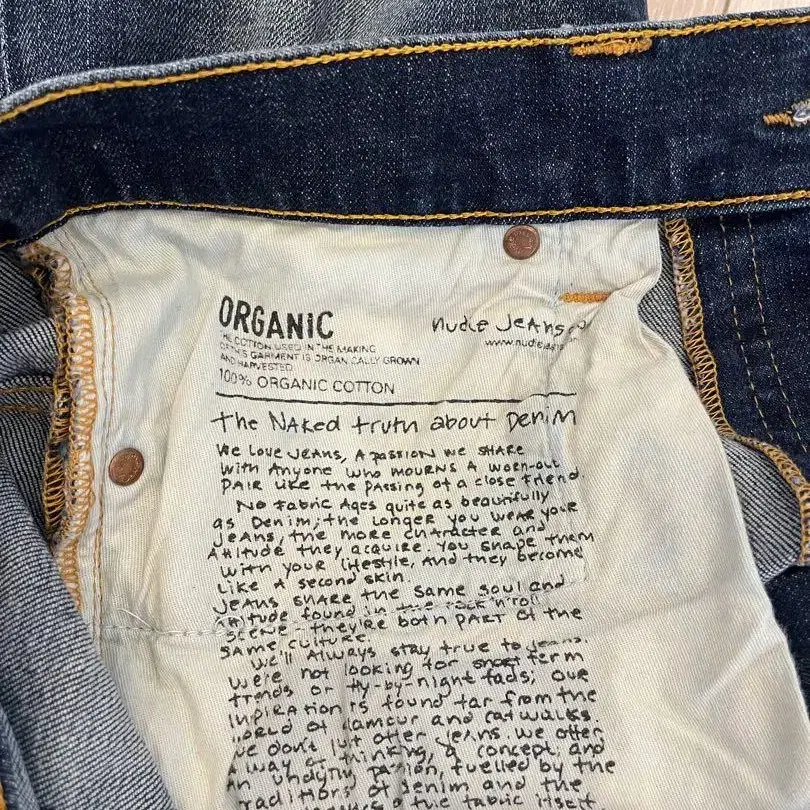 ORGANIC
THE COTTON USED IN THE MAKING
OF THIS GARMENT IS ORGANICALLY GROWN
AND HARVESTED
100% ORGANIC COTTON
nudie JEANS co
www.nudiejea
the NAKED truth about DENIM
WE LOVE JEANS, A PASSION WE SHARE
WITH ANYONE WHO MOURNS A WORN-OUT
PAIR LIKE THE PASSING OF A CLOSE FRIEND.
NO FABRIC AGES QUITE AS BEAUTIFULLY
AS DENIM; THE LONGER YOU WEAR YOUR
JEANS, THE MORE CHARACTER AND
ATTITUDE THEY ACQUIRE. YOU SHAPE THEM
WITH YOUR LIFESTYLE, AND THEY BECOME
LIKE A SECOND SKIN.
JEANS SHARE THE SAME SOUL AND
ATTITUDE FOUND IN THE ROCK'N'ROLL
SCENE - THEY'RE BOTH PART OF THE
SAME CULTURE.
WE'LL ALWAYS STAY TRUE TO JEANS.
WE'RE NOT LOOKING FOR SHORT TERM
TRENDS OR FLY-BY-NIGHT FADS; OUR
INSPIRATION IS FOUND FAR FROM THE
WORLD OF GLAMOUR AND CATWALKS.
WE DON'T JUST OFFER JEANS. WE OFFER
A WAY OF THINKING, A CONCEPT, AND
AN UNDYING PASSION, FUELLED BY THE
TRADITIONS OF DENIM AND THE
OF THE FABRIC ITSELF